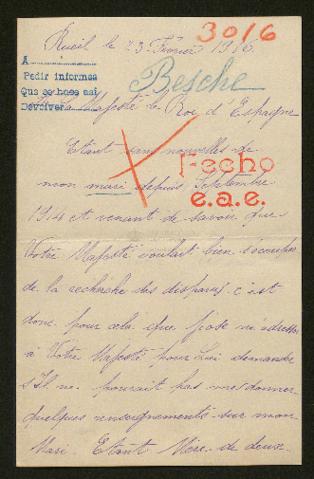 3016
Rueil le 23 Février 1916.
A
Pedir informes
Que se hace asi
Devolver
Besche
Sa Majesté le Roi d'Espagne
Etant sans nouvelles de
Fecho
mon mari depuis Septembre
e.a.e.
1914 et venant de savoir que
Votre Majesté voulait bien s'occuper
de la recherche des disparus c'est
donc pour cela que j'ose m'adresser
à Votre Majesté pour Lui demander
s'Il ne pourait pas me donner
quelques renseignements sur mon
Mari. Etant Mère de deux